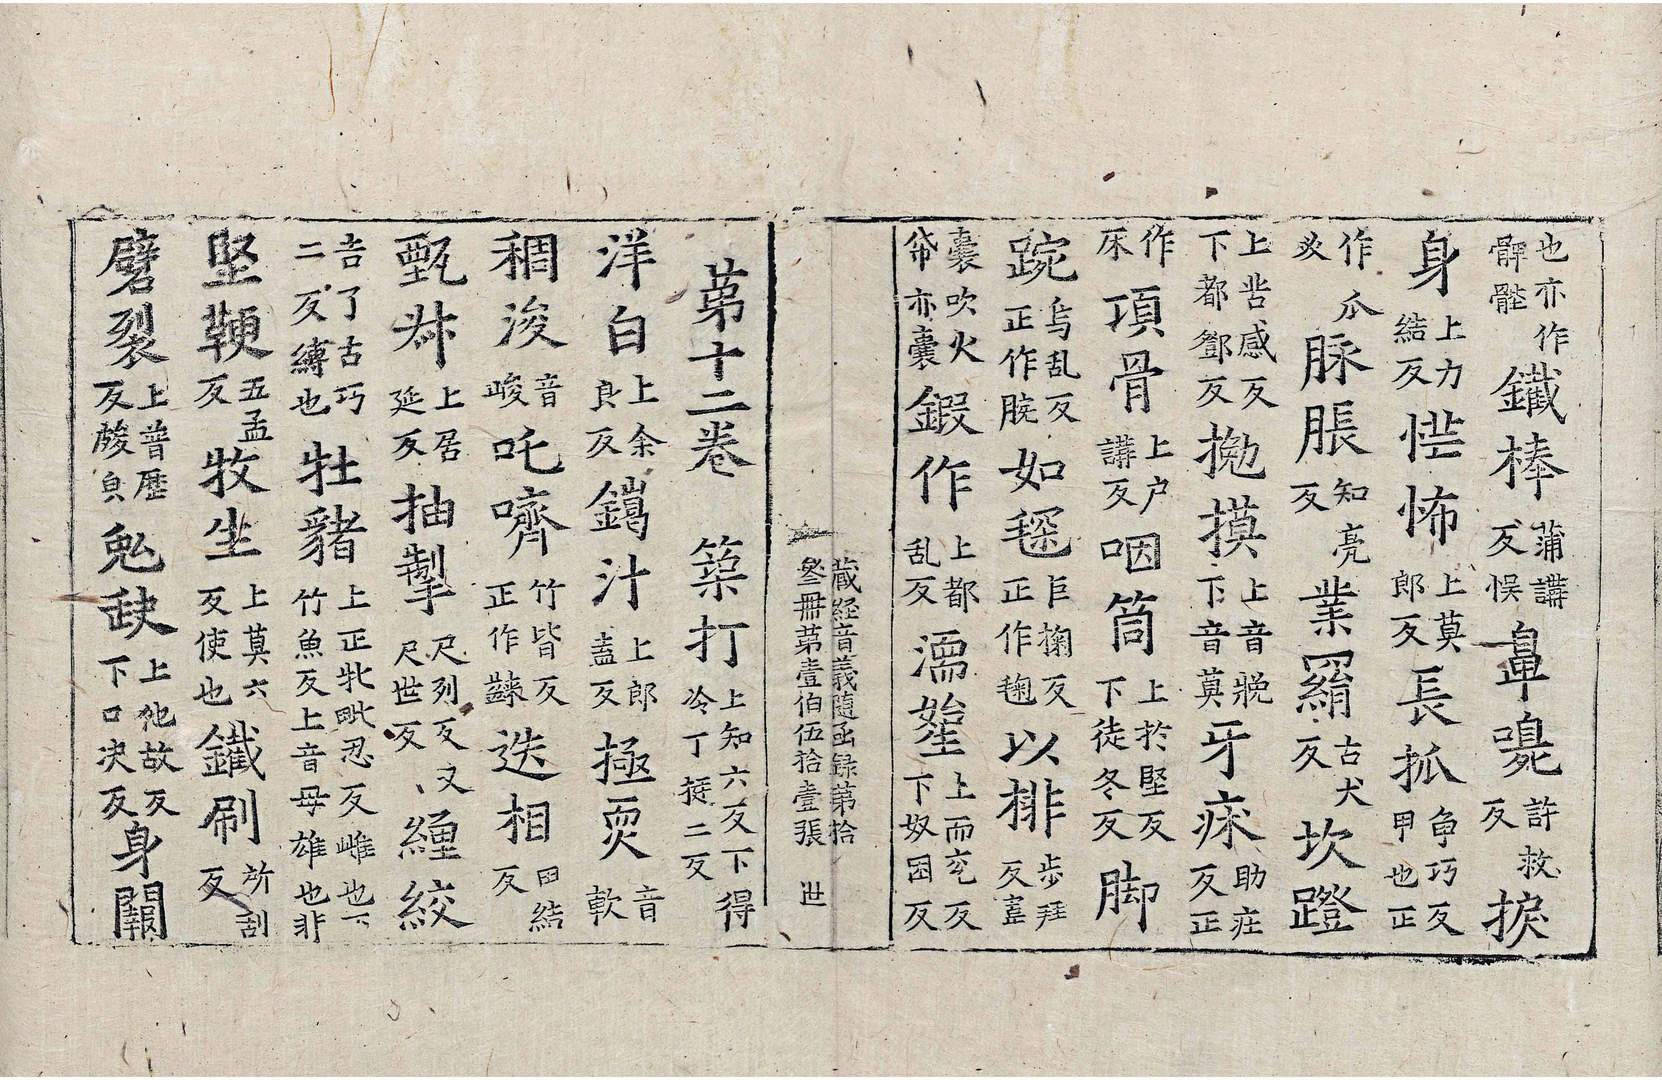 也亦作髀䏶鐵棒蒲講反悮鼻嚊許救反捩
身上力結反恾怖上莫郎反長抓爭巧反甲也正
作爪㸚脉脹知亮反業羂古犬反坎蹬
上苦感反下都鄧反㧓摸上音晚下音莫牙痳助庄反正
作床項骨上户講反咽筒上於堅反下徒冬反脚
踠烏乱反正作腕如毬巨掬反正作毱以排步拜反韋
囊吹火帒亦囊鍛作上都乱反濡㜳上而兖反下奴困反
藏經音義隨函録第拾
叁冊第壹伯伍拾壹張 世
第十二卷 築打上知六反下得冷丁挺二反
洋白上余良反鑞汁上郎盍反極耎音軟
稠浚音峻吒嚌竹皆反正作齼迭相田結反
甄叔上居延反抽掣尺列反又尺世反纏絞
吉了古巧二反縛也牡豬上正牝毗忍反雌也下竹魚反上音母雄也非
堅鞕五孟反牧生上莫六反使也鐵刷所刮反
礕裂上普歷反㿺皃兔缺上他故反下口决反身關